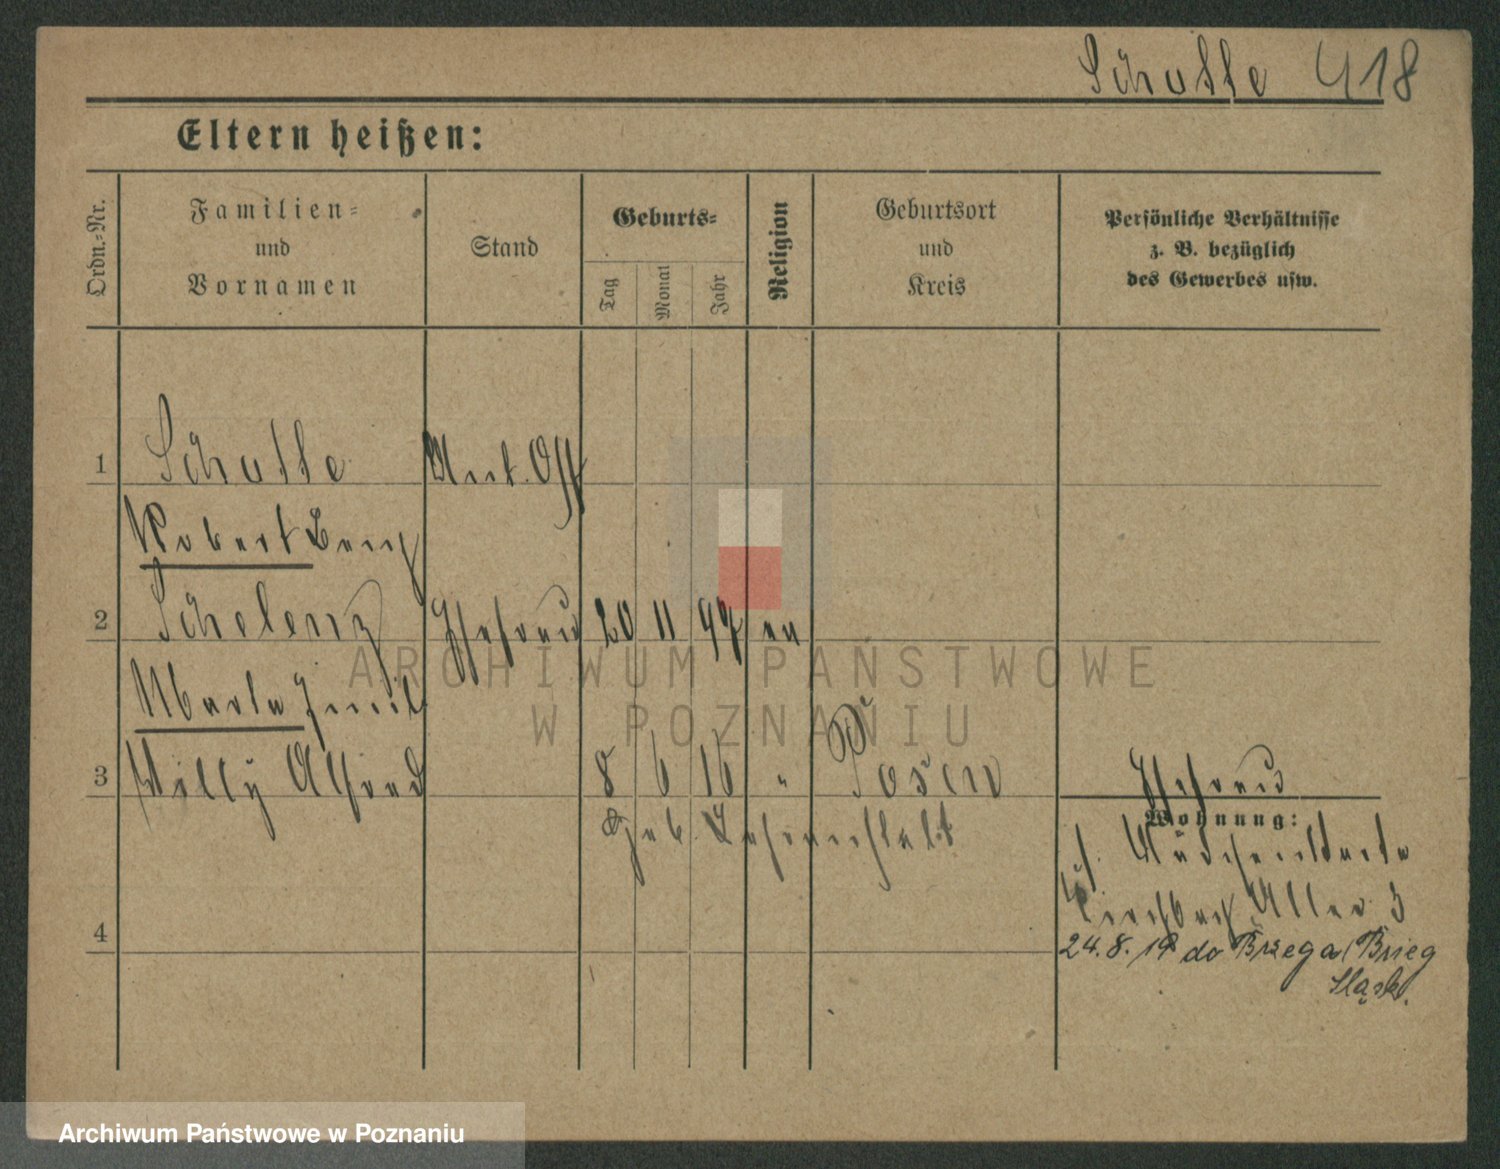 Schulle 418
Eltern heißen:
Ordn.-Nr.
Familien-
und
Vornamen
Stand
Geburts-
Tag
Monat
Jahr
Religion
Geburtsort
und
Kreis
Persönliche Verhältnisse
z. B. bezüglich
des Gewerbes usw.
1 Schulle Unt. Off
Robert
2 Schelenz Ehefrau 20 11 97 ev
Marta
3 Willy Alfred 8 6 16 " Posen
Ehefrau
Wohnung:
Geb.
4
Allee 3
24.8.19 do Brzega/Brieg
Śląsk.
ARCHIWUM PAŃSTWOWE
W POZNANIU
Archiwum Państwowe w Poznaniu